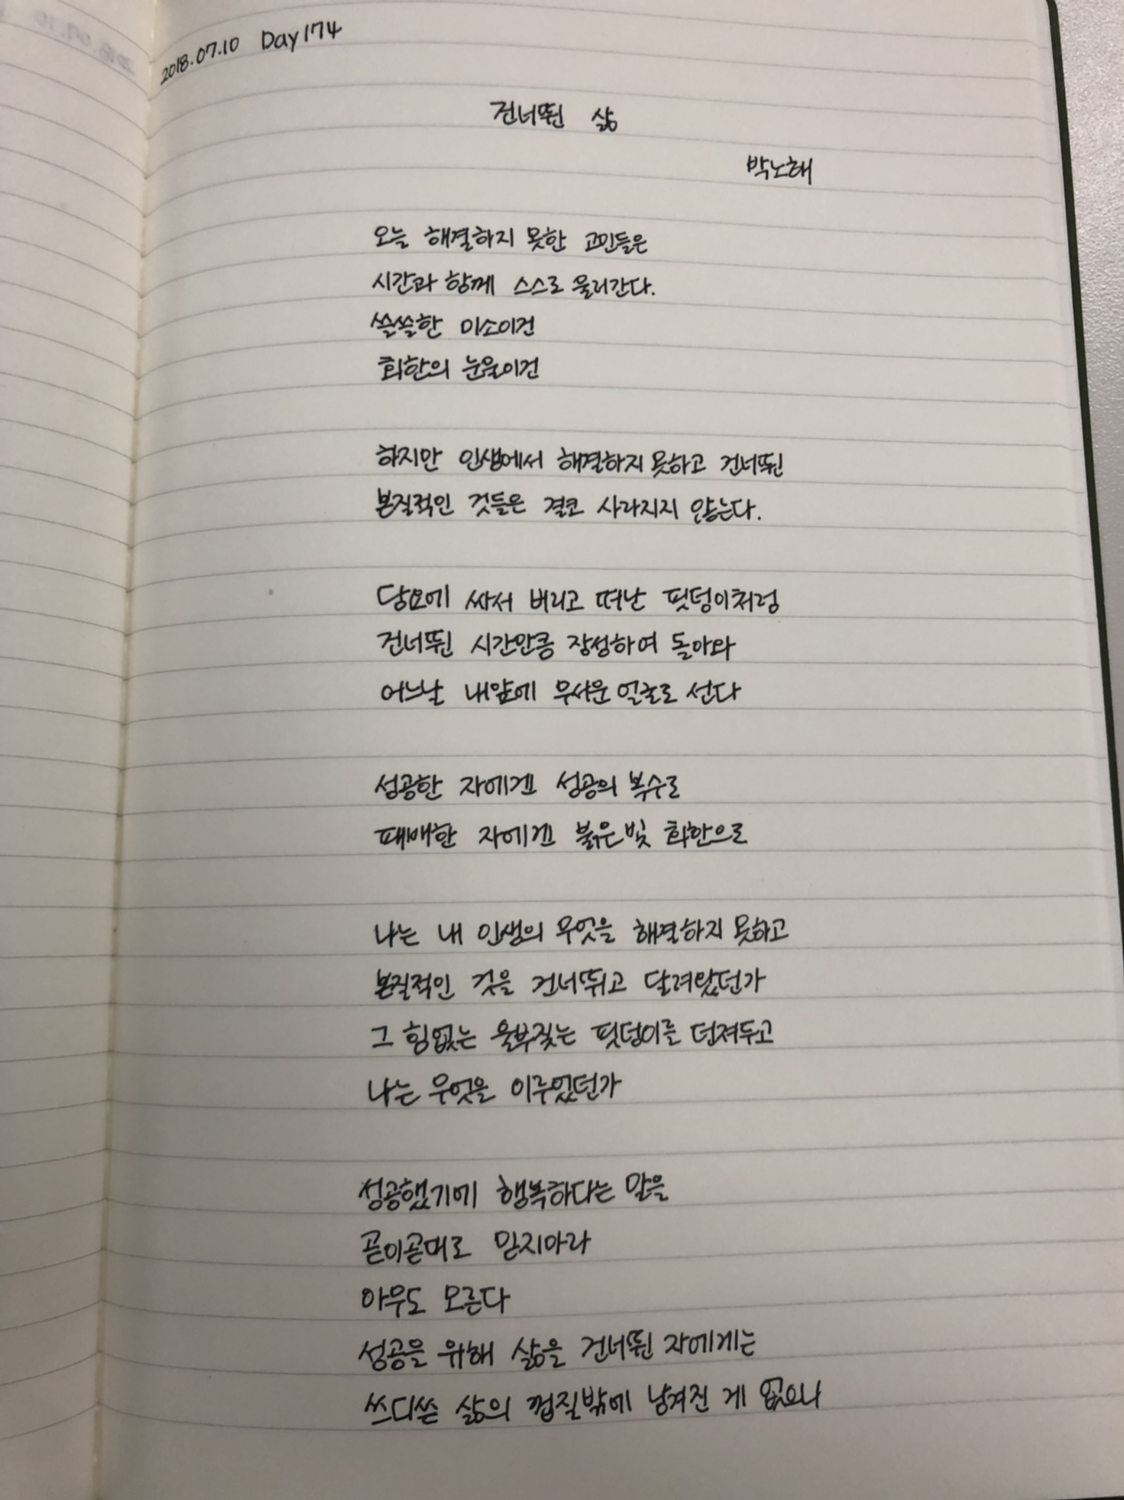 2018.07.10 Day174
건너뛴 삶
박노해
오늘 해결하지 못한 고민들은
시간과 함께 스스로 물러간다.
쓸쓸한 미소이건
회한의 눈물이건
하지만 인생에서 해결하지 못하고 건너뛴
본질적인 것들은 결코 사라지지 않는다.
담요에 싸서 버리고 떠난 핏덩이처럼
건너뛴 시간만큼 장성하여 돌아와
어느날 내앞에 무서운 얼굴로 선다
성공한 자에겐 성공의 복수로
패배한 자에겐 붉은빛 회한으로
나는 내 인생의 무엇을 해결하지 못하고
본질적인 것을 건너뛰고 달려왔던가
그 힘없는 울부짖는 핏덩이를 던져두고
나는 무엇을 이루었던가
성공했기에 행복하다는 말을
곧이곧대로 믿지마라
아무도 모른다
성공을 위해 삶을 건너뛴 자에게는
쓰디쓴 삶의 껍질밖에 남겨진 게 없으니